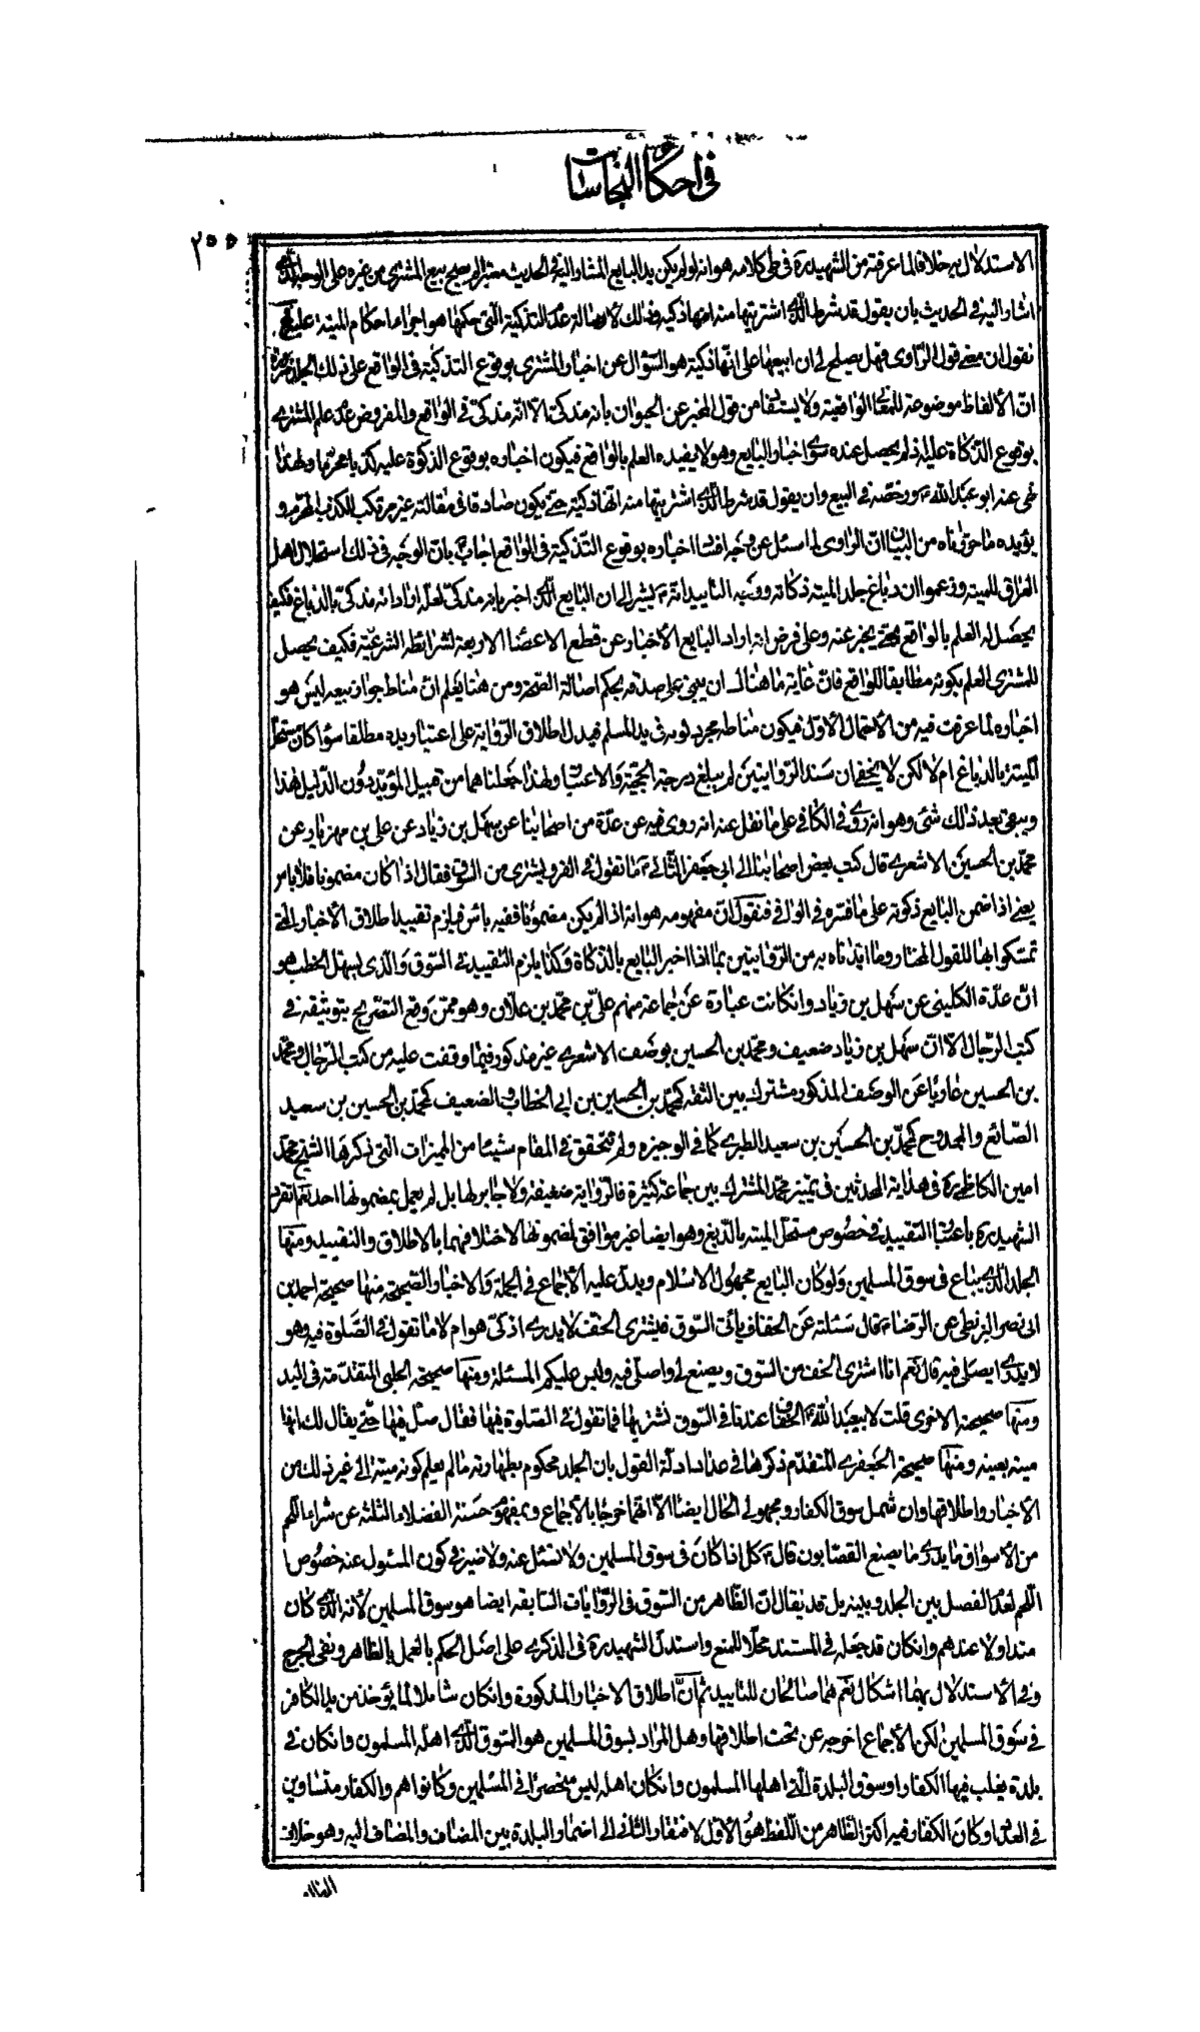 في احكام النجاسات
٢٥٥
الاستدلال به خلافا لما عرفته من الشهيد ره في طي كلامه هو انه لو لم يكن يد البايع المشار اليه في الحديث معتبرا لم يصح بيع المشتري من غيره على الوجه الذي
اشار اليه في الحديث بان يقول قد شرط الذي اشتريتها منه انها ذكية وذلك لأصالة عدم التذكية التي حكمها هو اجراء احكام الميتة عليه
نقول ان معنى قول الراوي فهل يصلح لي ان ابيعها على انها ذكية هو السؤال عن اخبار المشتري بوقوع التذكية في الواقع على ذلك الجلد ضرورة
ان الألفاظ موضوعة للمعاني الواقعية ولا يستفاد من قول المخبر عن الحيوان بانه مذكى الا انه مذكى في الواقع والمفروض عدم علم المشتري
بوقوع الذكاة عليه اذ لم يحصل عنده سوى اخبار البايع وهو لا يفيده العلم بالواقع فيكون اخباره بوقوع الذكوة عليه كذبا محرما ولهذا
نهى عنه ابو عبد الله ع ورخصه في البيع وان يقول قد شرط الذي اشتريتها منه انها ذكية حتى يكون صادقا في مقالته غير مرتكب للكذب المحرم و
يؤيده ما حققناه من البيان ان الراوي لما سئل عن وجه افساد اخباره بوقوع التذكية في الواقع اجاب ع بان الوجه في ذلك استحلال اهل
العراق للميتة وزعموا ان دباغ جلد الميتة ذكاته ووجه التاييد انه ع يشير الى ان البايع الذي اخبر بانه مذكى لعله اراد انه مذكى بالدباغ فكيف
يحصل له العلم بالواقع حتى يخبر عنه وعلى فرض انه اراد البايع الأخبار عن قطع الاعضاء الاربعة لشرائطه الشرعية فكيف يحصل
للمشتري العلم بكونه مطابقا للواقع فان غاية ما هناك ان يبنى على صدقه بحكم اصالة الصحة ومن هنا يعلم ان مناط جواز بيعه ليس هو
اخباره لما عرفت فيه من الأحتمال الأول فيكون مناطه مجرد كونه في يد المسلم فيدل اطلاق الرواية على اعتبار يده مطلقا سواء كان مستحل
الميتة بالدباغ ام لا لكن لا يخفى ان سند الروايتين لم يبلغ درجة الحجية والاعتبار ولهذا جعلناهما من قبيل المؤيد دون الدليل هذا
ويبقى بعد ذلك شئ وهو انه روى في الكافي على ما نقل عنه انه روى فيه عن عدة من اصحابنا عن سهل بن زياد عن علي بن مهزيار عن
محمد بن الحسين الاشعري قال كتب بعض اصحابنا الى ابي جعفر الثاني ع ما تقول في الفرو يشترى من السوق فقال اذا كان مضمونا فلا باس
يعني اذا ضمن البايع ذكوته على ما فسره في الوافي فنقول ان مفهومه هو انه اذا لم يكن مضمونا ففيه باس فيلزم تقييد اطلاق الأخبار التي
تمسكوا بها للقول المختار وما ايدناه به من الروايتين بما اذا اخبر البايع بالذكاة وكذا يلزم التقييد في السوق والذي يسهل الخطب هو
ان عدة الكليني عن سهل بن زياد وان كانت عبارة عن جماعة منهم علي بن محمد بن علان وهو ممن وقع التصريح بتوثيقه في
كتب الرجال الا ان سهل بن زياد ضعيف ومحمد بن الحسين بوصف الاشعري غير مذكور فيما وقفت عليه من كتب الرجال ومحمد
بن الحسين عاريا عن الوصف المذكور مشترك بين الثقة كمحمد بن الحسين بن ابي الخطاب والضعيف كمحمد بن الحسين بن سعيد
الصائغ والممدوح كمحمد بن الحسين بن سعيد الطبري كما في الوجيزه ولم يتحقق في المقام شيئا من المميزات التي ذكرها الشيخ محمد
امين الكاظمي ره في هداية المحدثين في تمييز محمد المشترك بين جماعة كثيرة فالرواية ضعيفة ولا جابر لها بل لم يعمل بمضمونها احد نعم تفرد
الشهيد ره باعتبار التقييد في خصوص مستحل الميتة بالدبغ وهو ايضا غير موافق لمضمونها لاختلافهما بالاطلاق والتقييد ومنها
الجلد الذي يباع في سوق المسلمين ولو كان البايع مجهول الاسلام ويدل عليه الأجماع في الجملة والاخبار الصحيحة منها صحيحة احمد بن
ابي نصر البزنطي عن الرضا ع قال سئلته عن الخفاف يأتي السوق فيشتري الخف لا يدري اذكي هو ام لا ما تقول في الصلوة فيه وهو
لا يدري ايصلي فيه قال نعم انا اشترى الخف من السوق ويصنع لي واصلي فيه وليس عليكم المسئلة ومنها صحيحة الحلبي المتقدمة في اليد
ومنها صحيحته الاخرى قلت لابي عبد الله ع الخفاف عندنا في السوق نشتريها فما تقول في الصلوة فيها فقال صل فيها حتى يقال لك انها
ميتة بعينه ومنها صحيحة الجعفري المتقدم ذكرها في عداد ادلة القول بان الجلد محكوم بطهارته ما لم يعلم كونه ميتة الى غير ذلك من
الأخبار واطلاقها وان شمل سوق الكفار ومجهول الحال ايضا الا انهما خرجا بالأجماع وبمفهوم حسنة الفضلاء الثلثة عن شراء اللحم
من الأسواق ما يدرى ما يصنع القصابون قال ع كل اذا كان في سوق المسلمين ولا تسئل عنه ولا ضير في كون المسئول عنه خصوص
اللحم لعدم الفصل بين الجلد وبينه بل قد يقال ان الظاهر من السوق في الروايات السابقة ايضا هو سوق المسلمين لأنه الذي كان
متداولا عندهم وان كان قد جعله في المستند محلا للمنع واستدل الشهيد ره في الذكرى على اصل الحكم بالعمل بالظاهر ونفي الحرج
وفي الاستدلال بهما اشكال نعم هما صالحان للتاييد ثم ان اطلاق الاخبار المذكورة وان كان شاملا لما يؤخذ من يد الكافر
في سوق المسلمين لكن الأجماع اخرجه عن تحت اطلاقها وهل المراد بسوق المسلمين هو السوق الذي اهله المسلمون وان كان في
بلدة يغلب فيها الكفار او سوق البلدة التي اهلها المسلمون وان كان اهله ليس منحصرا في المسلمين وكانوا هم والكفار متساوين
في العدد او كان الكفار فيه اكثر الظاهر من اللفظ هو الأول لافتقار الثاني الى اضمار البلدة بين المضاف والمضاف اليه وهو خلاف